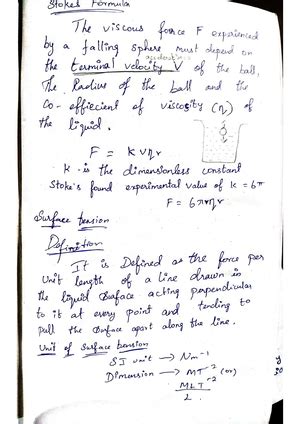 Stokes Formula
The viscous force F experienced
by a falling sphere must depend on
the terminal velocity V of the ball,
The Radius of the ball and the
Co-effiecient of viscosity (η) of
the liquid.
F = K v η r
K - is the dimensionless constant
Stoke's found experimental value of K = 6π
F = 6πvηr
Surface tension
Definition
It is Defined as the force per
Unit length of a line drawn in
the liquid Surface acting perpendicular
to it at every point and tending to
pull the Surface apart along the line.
Unit of Surface tension
SI unit → Nm⁻¹
Dimension → MT⁻² (or)
MLT⁻²